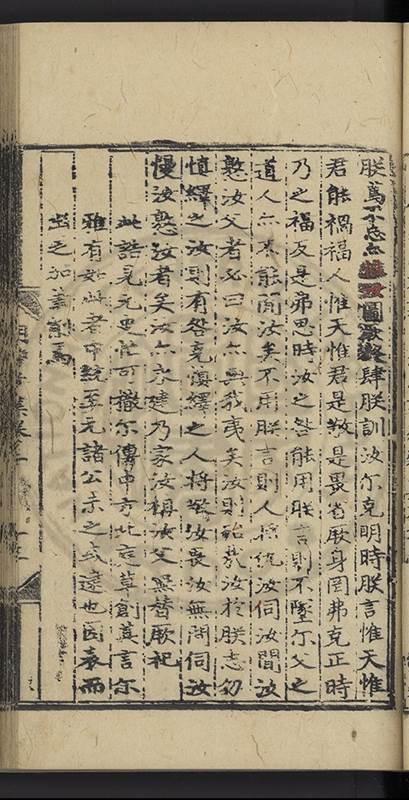 朕篤不忘尔圖厥終肆朕訓汝尔克明時朕言惟天惟
君能禍福人惟天惟君是敬是畏省厥身罔弗克正時
乃之福反是弗思時汝之咎能用朕言則不墜尔父之
道人亦不能間汝矣不用朕言則人將伺汝間汝
憝汝父者必曰汝亦無我夷矣汝則殆哉汝於朕志勿
慎繹之汝則有咎克慎繹之人將敬汝畏汝無間伺汝
慢汝憝汝者矣汝亦永建乃家汝稱汝父無替厥祀
此誥見元史可撒尔傳中方此造草創真言尔
雅有如此者中統至元諸公未之或逮也因表而
出之加